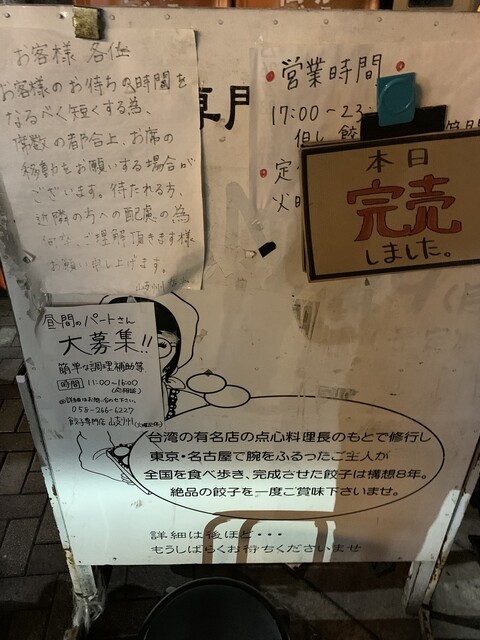 お客様 各位
お客様のお待ちの時間を
なるべく短くする為、
席数の都合上、お席の
移動をお願いする場合が
ございます。待たれる方、
近隣の方への配慮の為
何卒、ご理解頂きます様
お願い申し上げます。
専門
営業時間
17:00～23:
但し 餃
定
火曜
本日
完売
しました。
昼間のパートさん
大募集!!
簡単な調理補助等
時間 11:00～16:00
(応相談)
※詳細はお問い合わせ下さい。
058-266-6227
餃子専門店
台湾の有名店の点心料理長のもとで修行し
東京・名古屋で腕をふるったご主人が
全国を食べ歩き、完成させた餃子は構想8年。
絶品の餃子を一度ご賞味下さいませ。
詳細は後ほど・・・
もうしばらくお待ちくださいませ